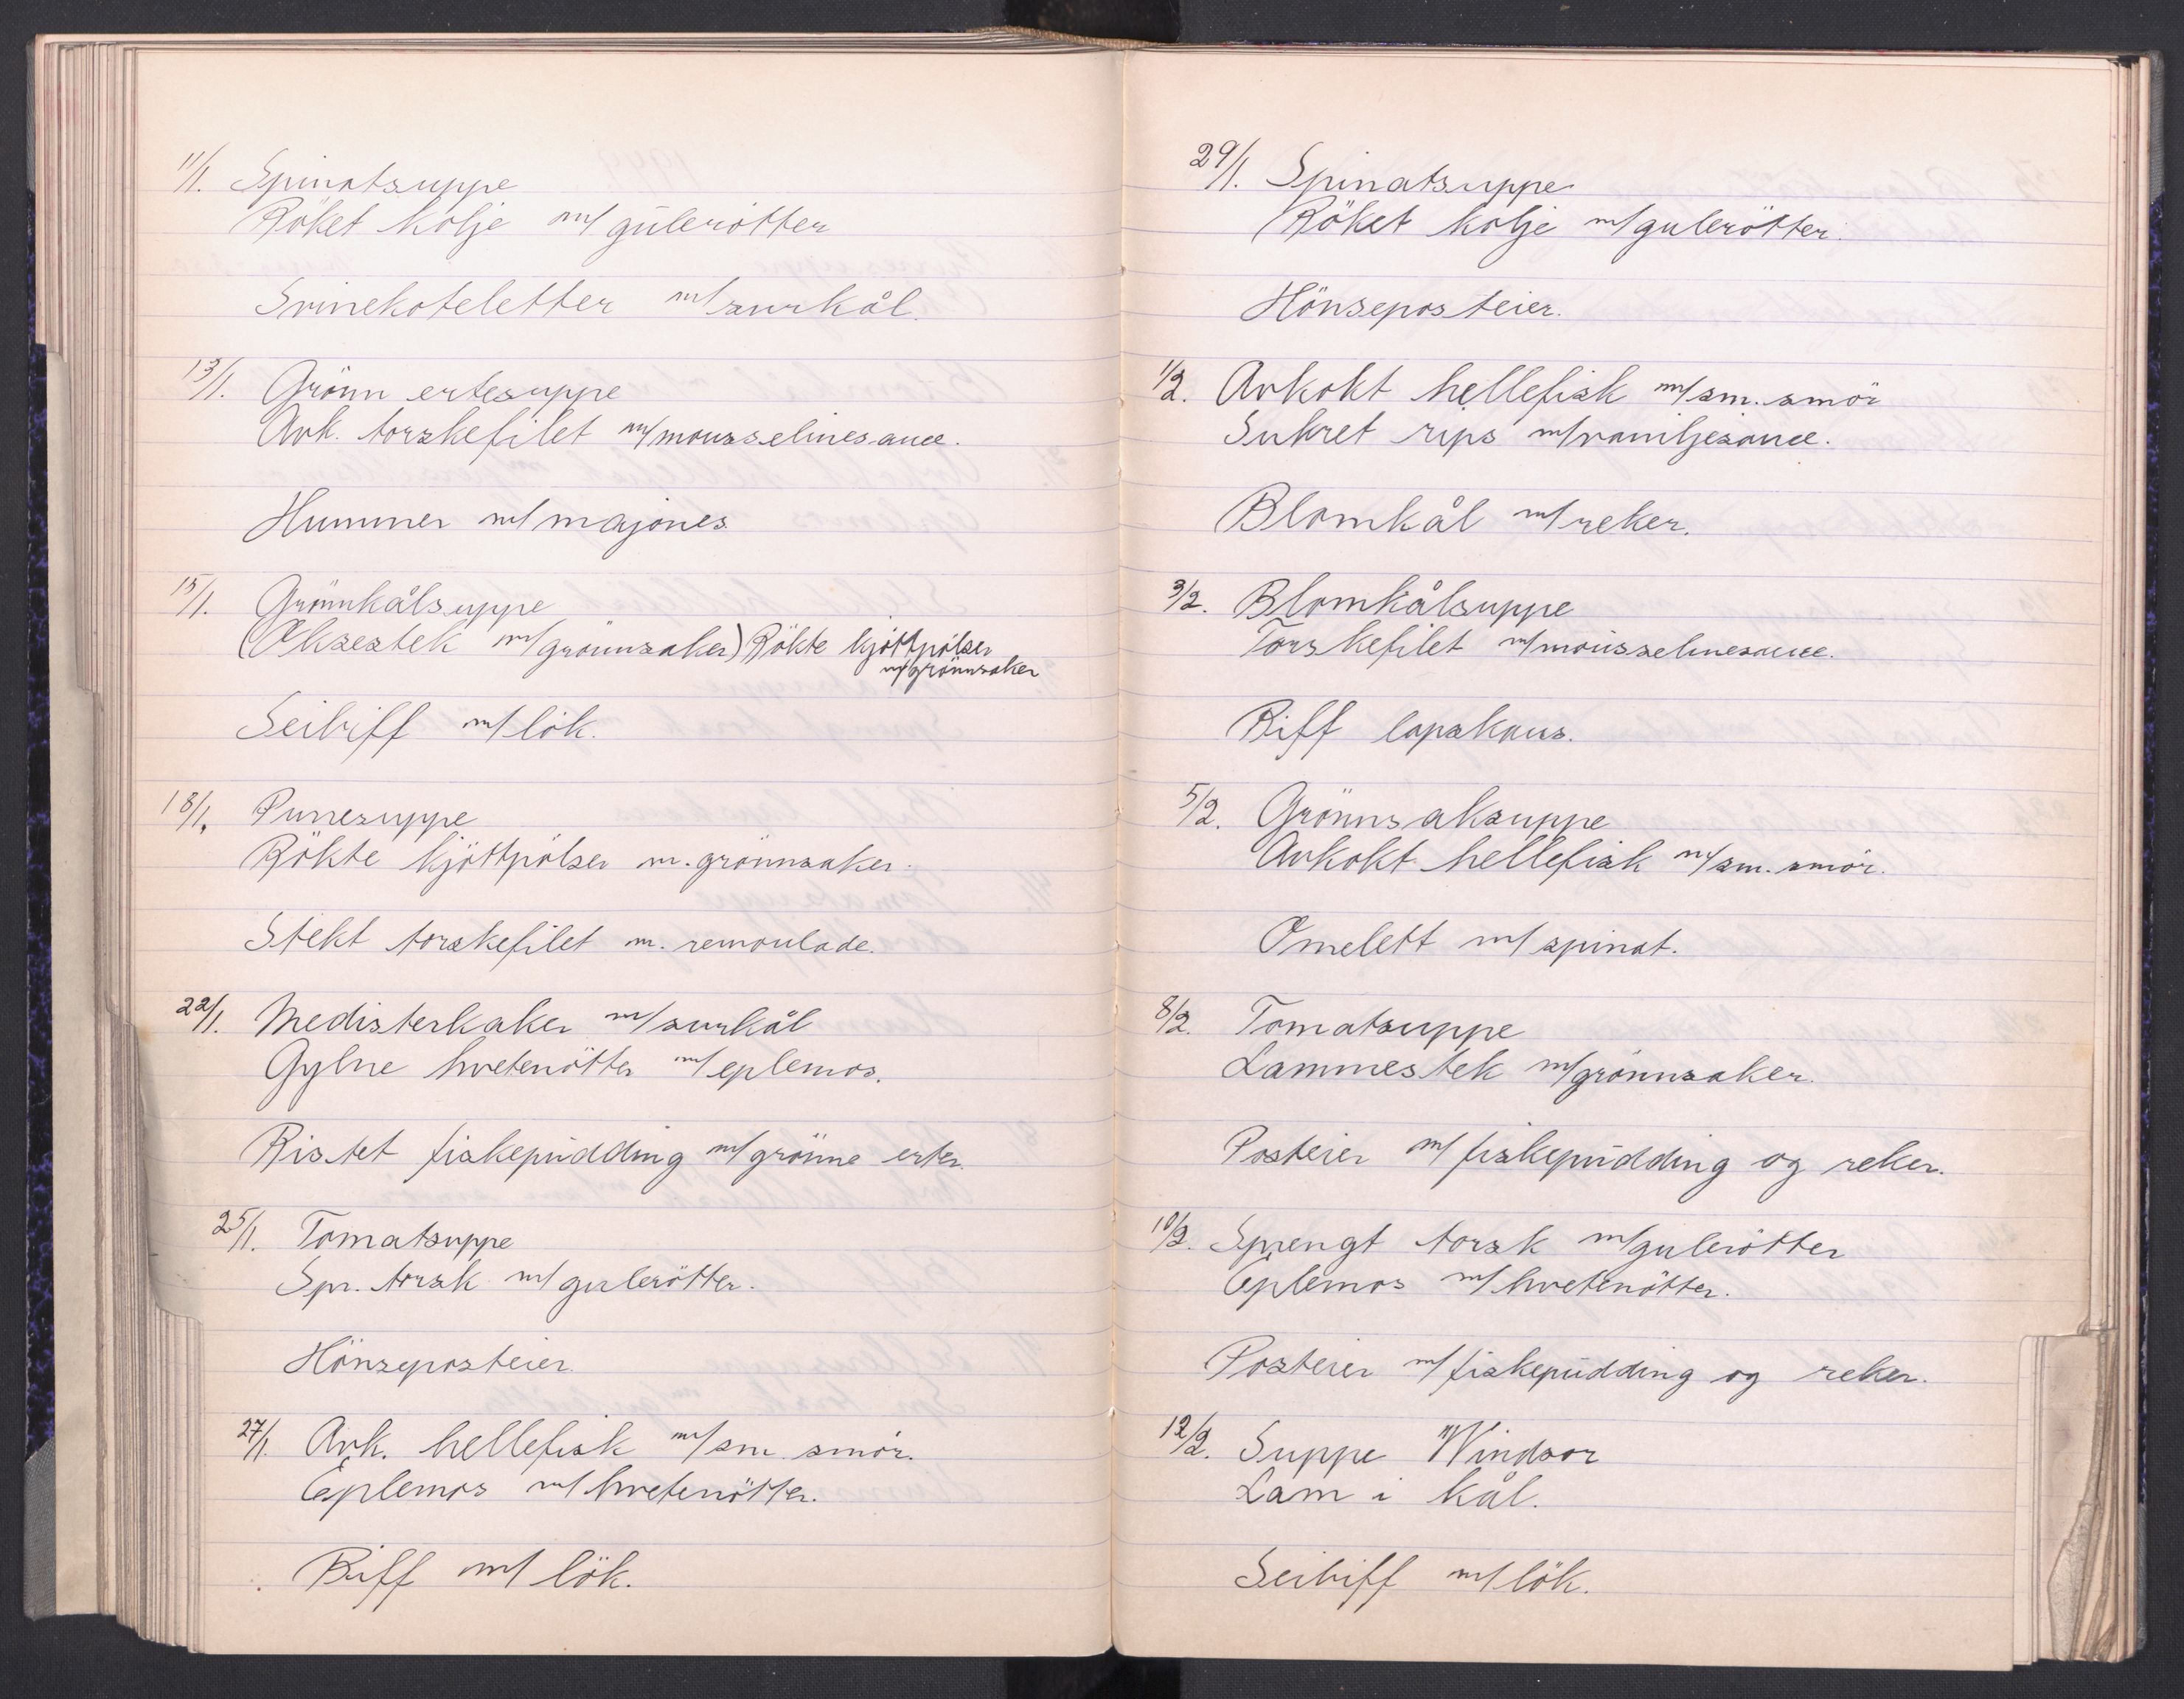 11/1. Spinatsuppe
Röket kolje m/ gulerötter
Svinekoteletter m/surkål.
13/1. Grönn ertesuppe
Avk. torskefilet m/mousselinesauce.
Hummer m/ majones
15/1. Grönnkålsuppe
(Oksestek m/grönnsaker) Rökte kjöttpölser
m/grönnsaker
Seibiff m/ lök.
18/1. Purresuppe
Rökte kjöttpölser m. grönnsaker.
Stekt torskefilet m. remoulade.
22/1. Medisterkaker m/surkål
Gylne hvetenötter m/ eplemos.
Ristet fiskepudding m/ grönne erter.
25/1. Tomatsuppe
Spr. torsk m/ gulerötter.
Hönseposteier
27/1. Avk. hellefisk m/sm. smör.
Eplemos m/ hvetenötter.
Biff m/ lök.
29/1. Spinatsuppe
Röket kolje m/gulerötter.
Hönseposteier.
1/2. Avkokt hellefisk m/sm. smör
Sukret rips m/vaniljesauce.
Blomkål m/reker.
3/2. Blomkålsuppe
Torskefilet m/mousselinesauce.
Biff lapskaus.
5/2. Grönnsaksuppe
Avkokt hellefisk m/sm. smör.
Omelett m/ spinat.
8/2. Tomatsuppe
Lammestek m/grönnsaker.
Posteier m/ fiskepudding og reker.
10/2. Sprengt torsk m/gulerötter
Eplemos m/hvetenötter.
Posteier m/fiskepudding og reker.
12/2. Suppe Windsor
Lam i kål.
Seibiff m/lök.